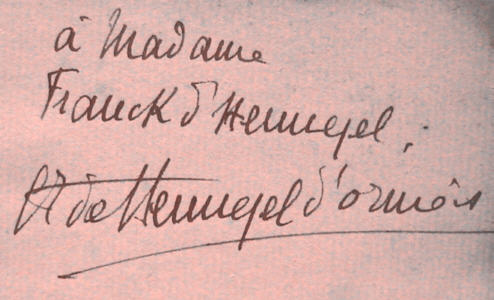 à Madame
Franck d'Hennezel,
H de Hennezel d'ormois